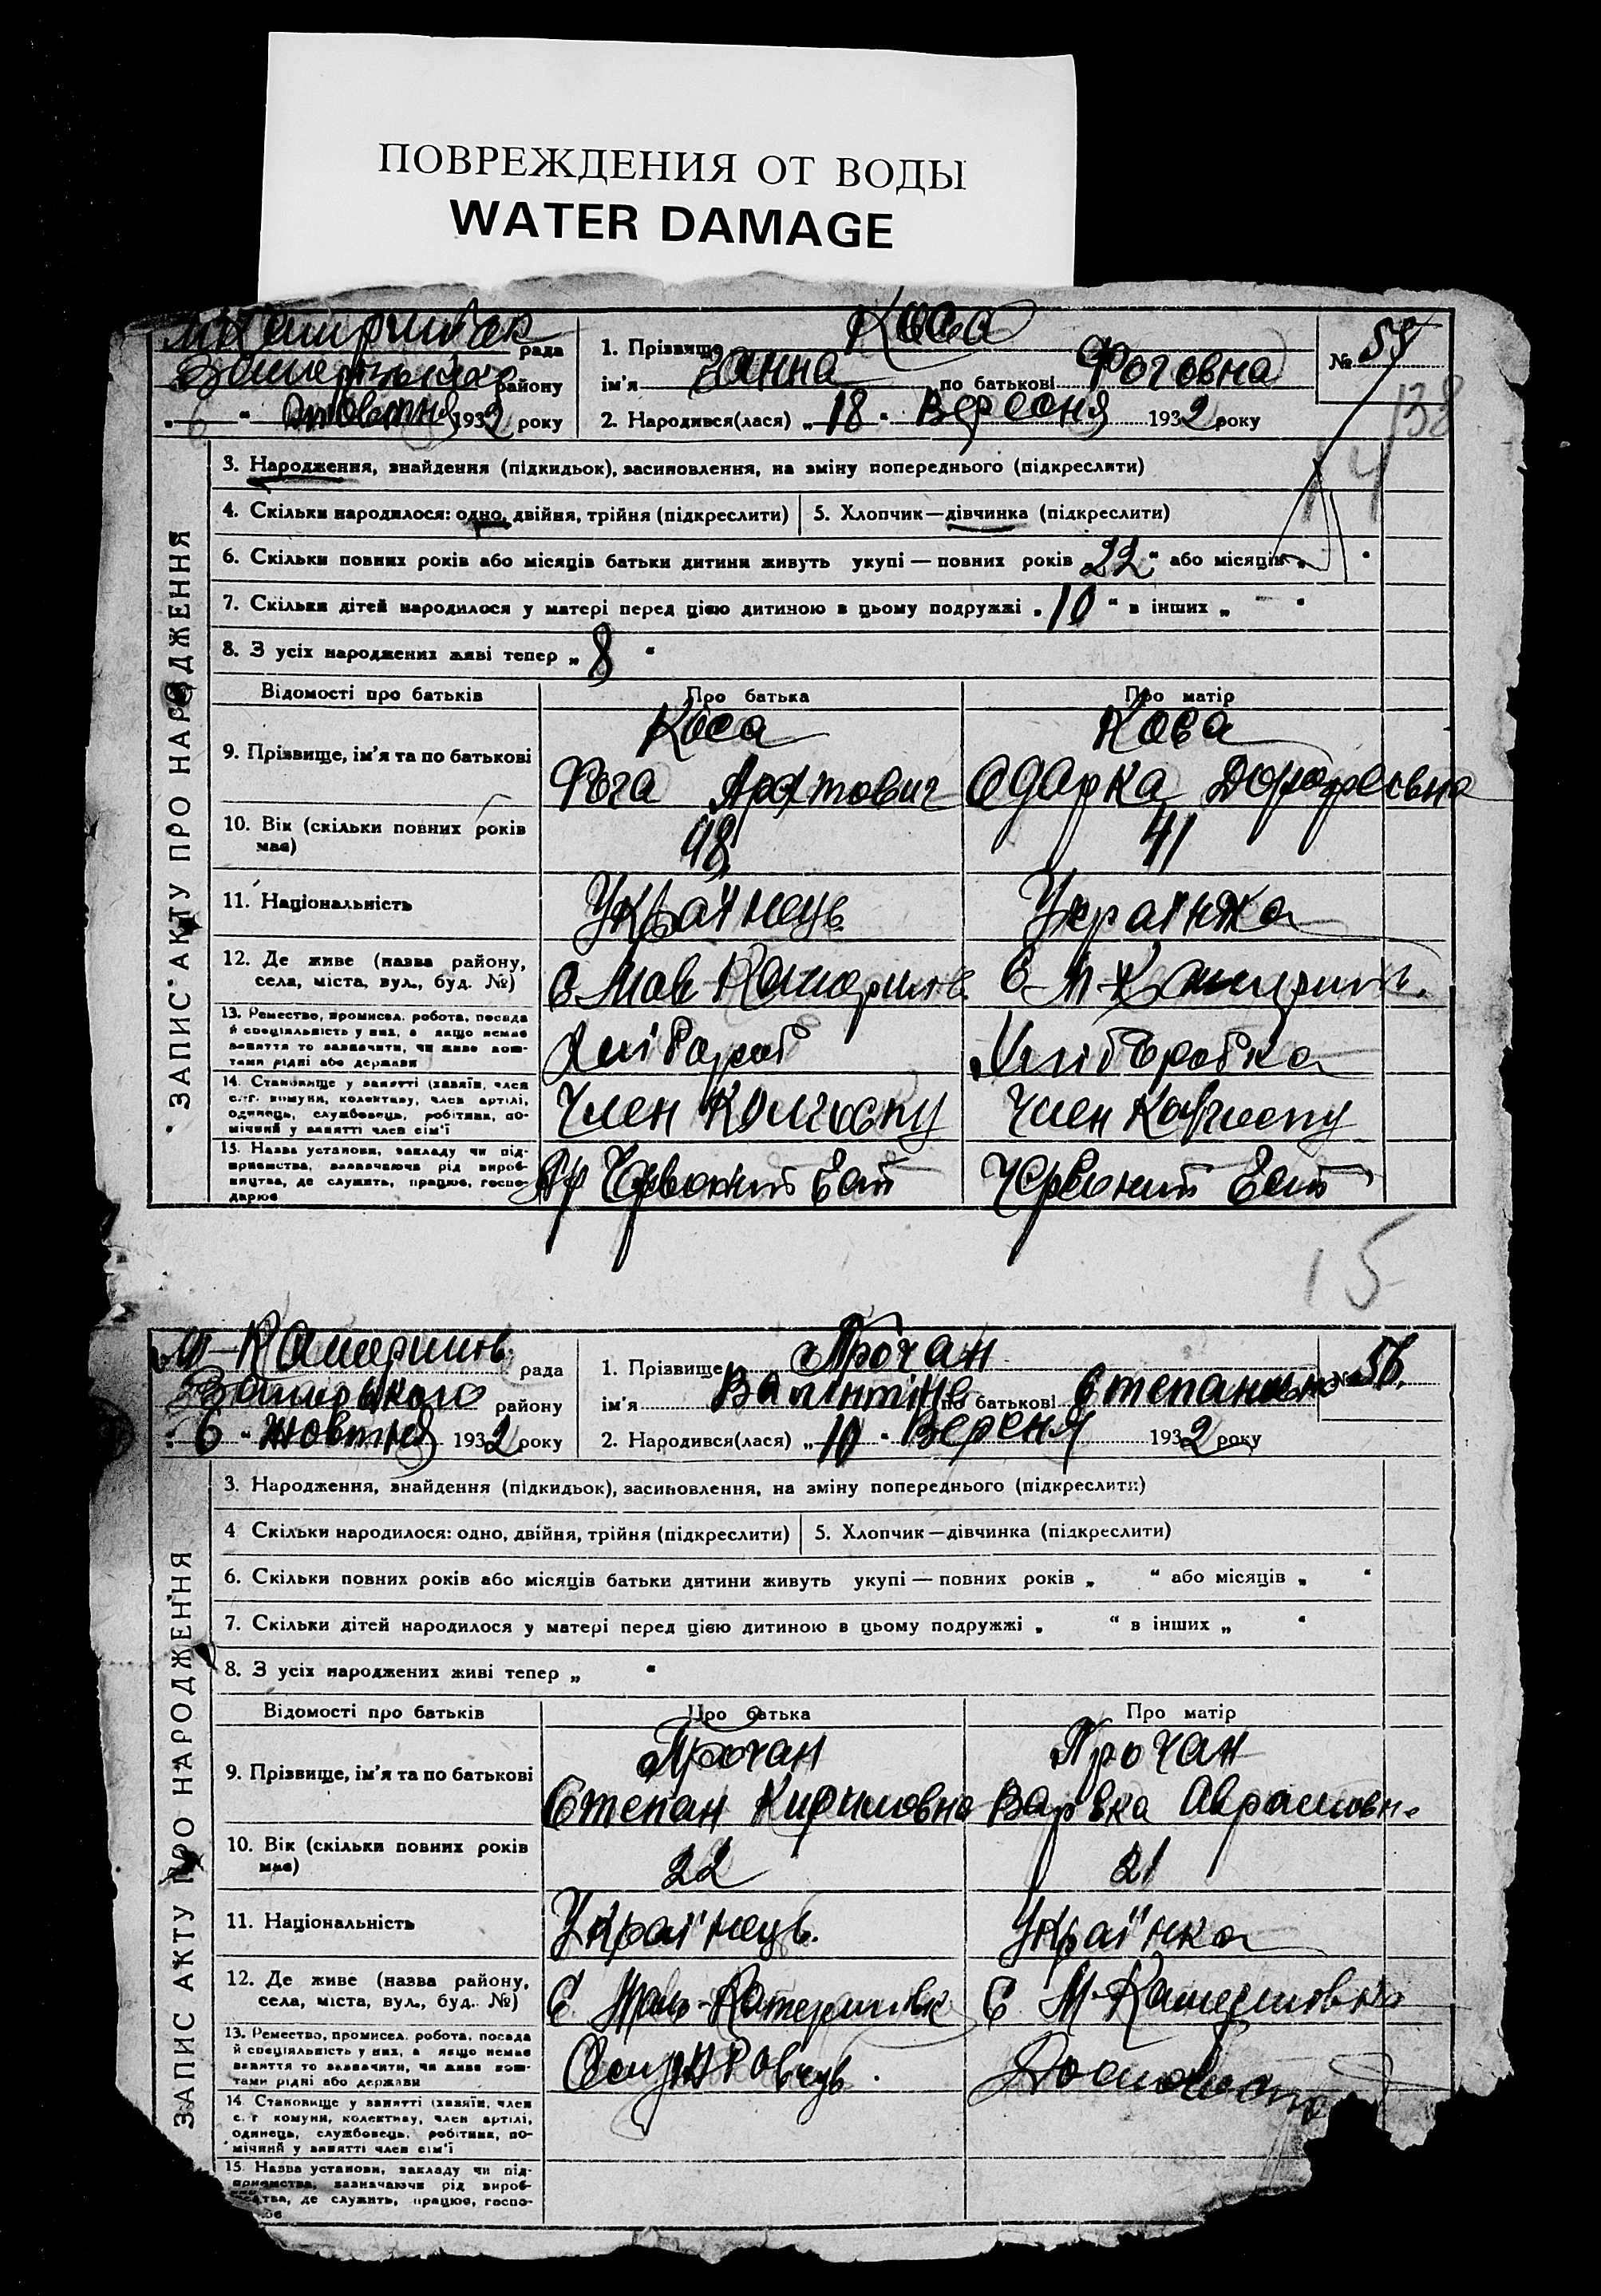 ПОВРЕЖДЕНИЯ ОТ ВОДЫ
WATER DAMAGE
рада
району
6 " жовтня 1932 року
1. Прізвище Коса
ім'я Ганна по батькові Фоговна
2. Народився(лася) „ 18 " Вересня 1932 року
№ 55
138
14
ЗАПИС АКТУ ПРО НАРОДЖЕННЯ
3. Народження, знайдення (підкидьок), засиновлення, на зміну попереднього (підкреслити)
4. Скільки народилося: одно, двійня, трійня (підкреслити) 5. Хлопчик—дівчинка (підкреслити)
6. Скільки повних років або місяців батьки дитини живуть укупі — повних років 22 " або місяців „ "
7. Скільки дітей народилося у матері перед цією дитиною в цьому подружжі „ 10 " в інших „ — "
8. З усіх народжених живі тепер „ 8 "
Відомості про батьків Про батька Про матір
9. Прізвище, ім'я та по батькові
Коса Коса
Фога Одарка
10. Вік (скільки повних років має)
48 41
11. Національність Українець Українка
12. Де живе (назва району, села, міста, вул., буд. №)
С С М-
13. Ремество, промисел, робота, посада й спеціяльність у них, а якщо немає заняття то зазначити, чи живе коштами рідні або держави
Хлібороб Хліборобка
14. Становище у занятті (хазяїн, член с.-г. комуни, колективу, член артілі, одинець, службовець, робітник, помічний у занятті член сім'ї
Член Колгоспу Член Колгоспу
15. Назва установи, закладу чи підприємства, зазначаючи рід виробництва, де служить, працює, господарює
Червоний Червоний
15
М-Катеринів. рада
району
6 " жовтня 1932 року
1. Прізвище Прочан
ім'я по батькові
2. Народився(лася) „ 10 " Вереня 1932 року
№ 56.
ЗАПИС АКТУ ПРО НАРОДЖЕННЯ
3. Народження, знайдення (підкидьок), засиновлення, на зміну попереднього (підкреслити)
4 Скільки народилося: одно, двійня, трійня (підкреслити) 5. Хлопчик—дівчинка (підкреслити)
6. Скільки повних років або місяців батьки дитини живуть укупі — повних років „ " або місяців „ "
7. Скільки дітей народилося у матері перед цією дитиною в цьому подружжі „ " в інших „ "
8. З усіх народжених живі тепер „ "
Відомості про батьків Про батька Про матір
9. Прізвище, ім'я та по батькові
Прочан Прочан
Степан Кириловна Варвка Аврамовн
10. Вік (скільки повних років має)
22 21
11. Національність Українець. Українка
12. Де живе (назва району, села, міста, вул., буд. №)
С. С. М-Катериновка
13. Ремество, промисел, робота, посада й спеціяльність у них, а якщо немає заняття то зазначити, чи живе коштами рідні або держави
14 Становище у занятті (хазяїн, член с. г комуни, колективу, член артілі, одинець, службовець, робітник, помічний у занятті член сім'ї
15. Назва установи, закладу чи підприємства, зазначаючи рід виробництва, де служить, працює, господарює